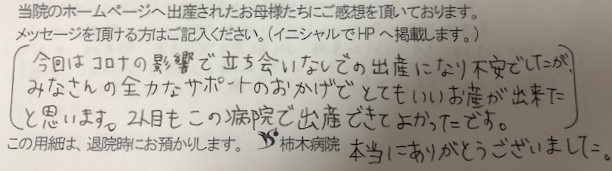 当院のホームページへ出産されたお母様たちにご感想を頂いております。
メッセージを頂ける方はご記入ください。(イニシャルでHPへ掲載します。)
今回はコロナの影響で立ち会いなしでの出産になり不安でしたが、
みなさんの全力なサポートのおかげでとてもいいお産が出来た
と思います。2人目もこの病院で出産できてよかったです。
この用紙は、退院時にお預かりします。 柿木病院 本当にありがとうございました。